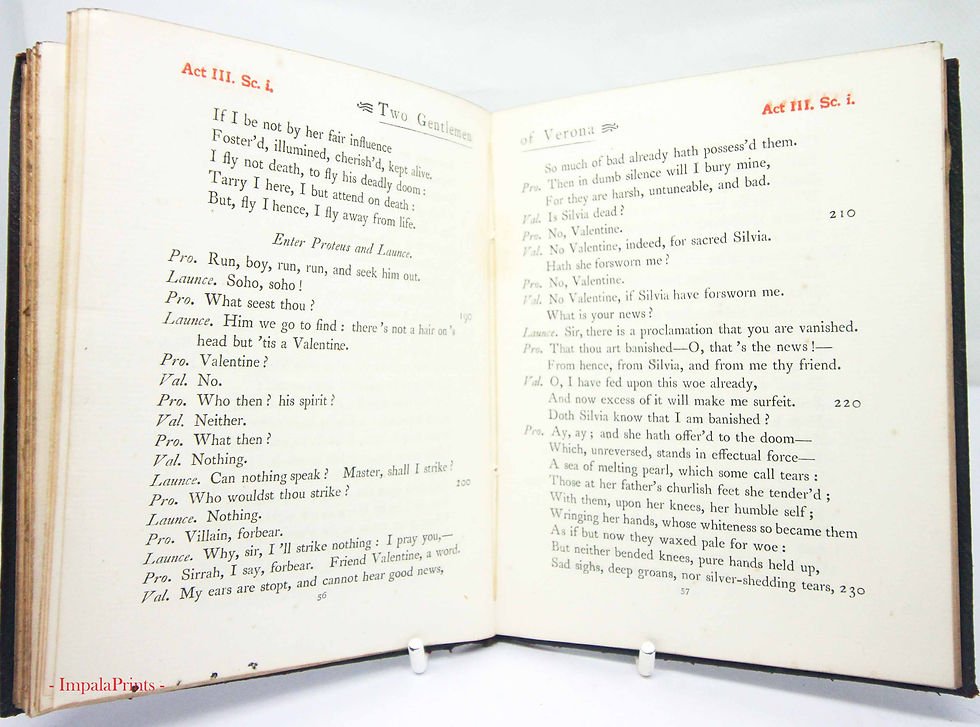 Act III. Sc. i.
Two Gentlemen
If I be not by her fair influence
Foster'd, illumined, cherish'd, kept alive.
I fly not death, to fly his deadly doom:
Tarry I here, I but attend on death:
But, fly I hence, I fly away from life.
Enter Proteus and Launce.
Pro. Run, boy, run, run, and seek him out.
Launce. Soho, soho!
Pro. What seest thou?
Launce. Him we go to find: there's not a hair on's 190
head but 'tis a Valentine.
Pro. Valentine?
Val. No.
Pro. Who then? his spirit?
Val. Neither.
Pro. What then?
Val. Nothing.
Launce. Can nothing speak? Master, shall I strike?
Pro. Who wouldst thou strike? 200
Launce. Nothing.
Pro. Villain, forbear.
Launce. Why, sir, I'll strike nothing: I pray you,—
Pro. Sirrah, I say, forbear. Friend Valentine, a word.
Val. My ears are stopt, and cannot hear good news,
56
Act III. Sc. i.
of Verona
So much of bad already hath possess'd them.
Pro. Then in dumb silence will I bury mine,
For they are harsh, untuneable, and bad.
Val. Is Silvia dead? 210
Pro. No, Valentine.
Val. No Valentine, indeed, for sacred Silvia.
Hath she forsworn me?
Pro. No, Valentine.
Val. No Valentine, if Silvia have forsworn me.
What is your news?
Launce. Sir, there is a proclamation that you are vanished.
Pro. That thou art banished—O, that's the news!—
From hence, from Silvia, and from me thy friend.
Val. O, I have fed upon this woe already,
And now excess of it will make me surfeit. 220
Doth Silvia know that I am banished?
Pro. Ay, ay; and she hath offer'd to the doom—
Which, unreversed, stands in effectual force—
A sea of melting pearl, which some call tears:
Those at her father's churlish feet she tender'd;
With them, upon her knees, her humble self;
Wringing her hands, whose whiteness so became them
As if but now they waxed pale for woe:
But neither bended knees, pure hands held up,
Sad sighs, deep groans, nor silver-shedding tears, 230
57
- ImpalaPrints -